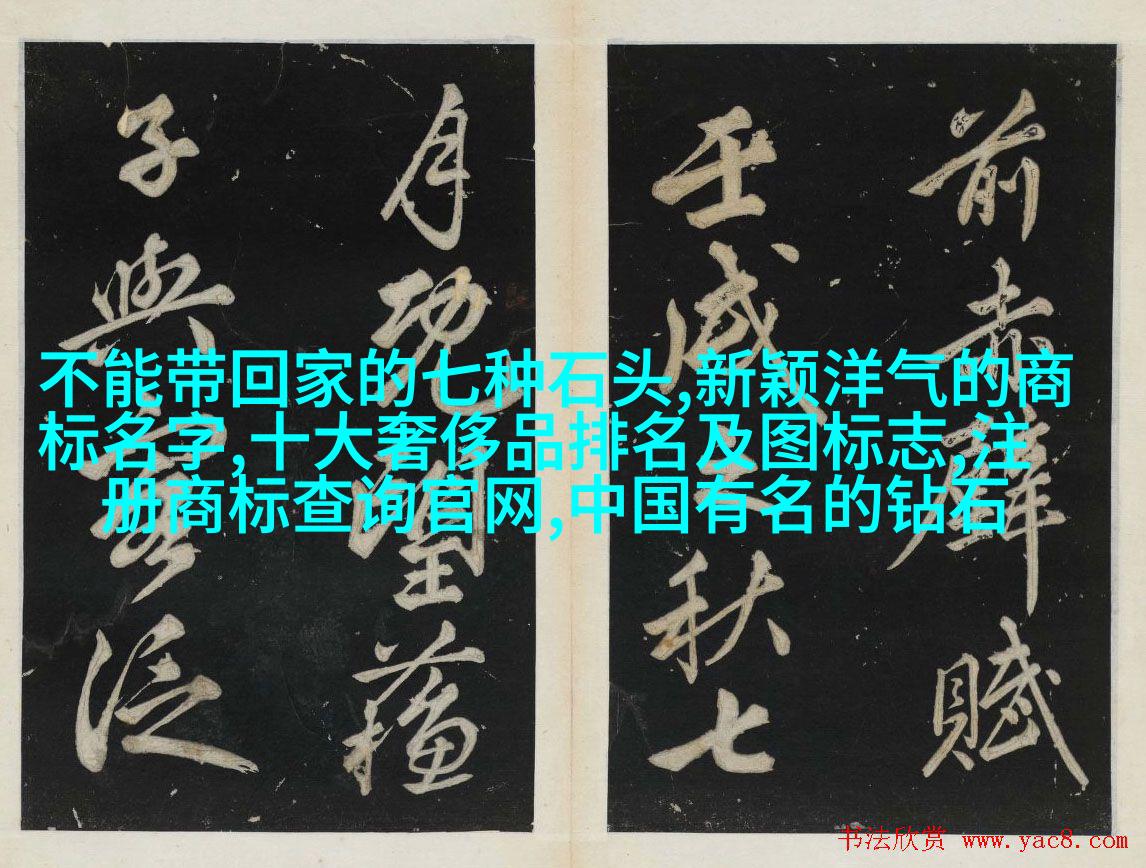 前赤壁賦
壬戌之秋七
月既望蘓
子與客泛
不能带回家的七种石头,新颖洋气的商
标名字,十大奢侈品排名及图标志,注
册商标查询官网,中国有名的钻石
书法欣赏 www.yac8.com